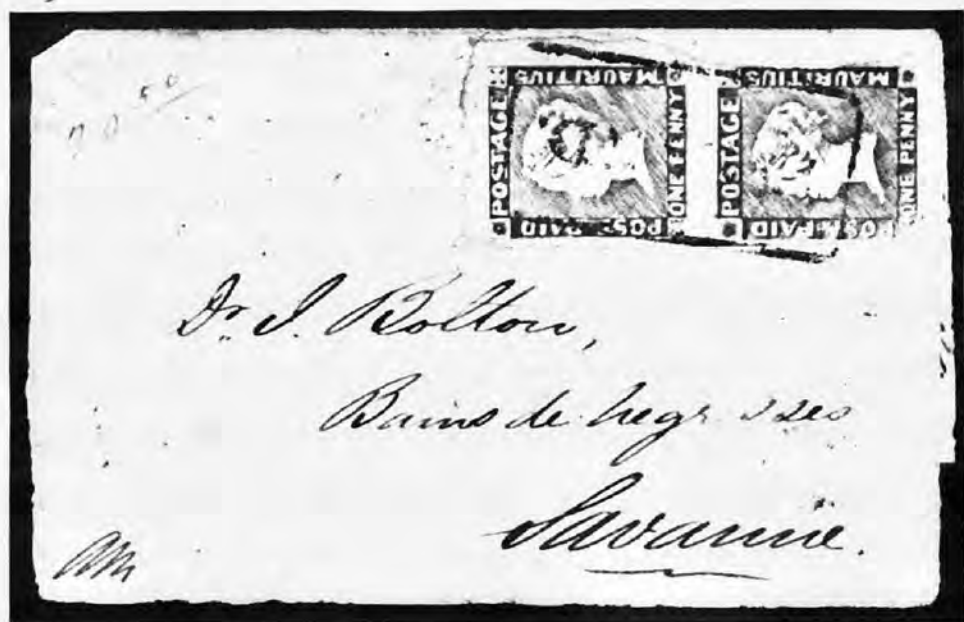 POSTAGE MAURITIUS ONE PENNY POST PAID
POSTAGE MAURITIUS ONE PENNY POST PAID
Dr. J. Bolton,
Bains de
Savanne.